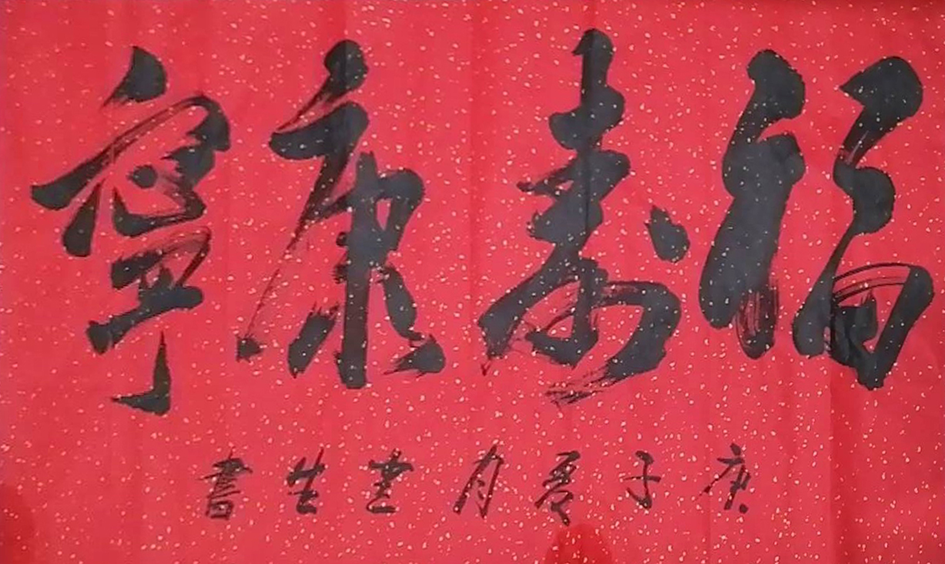 福寿康寧
庚子夏月生書